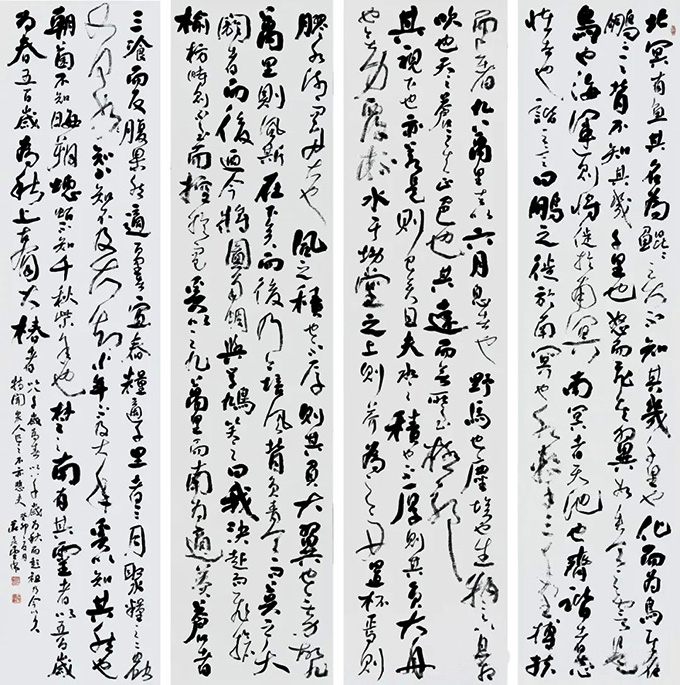 北冥有魚其名為鯤鯤之大不知其幾千里也化而為鳥其名
鵬鵬之背不知其幾千里也怒而飛其翼若垂天之雲是
鳥也海運則將徙於南冥南冥者天池也齊諧者志
怪者也諧之言曰鵬之徙於南冥也水擊三千里摶扶
而上者九萬里去以六月息者也野馬也塵埃也生物之以息相
吹也天之蒼蒼其正色也其遠而無所至極邪
其視下也亦若是則已矣且夫水之積也不厚則其負大舟
也無力覆杯水于坳堂之上則芥為之舟置杯焉則
膠水淺而舟大也風之積也不厚則其負大翼也無力故九
萬里則風斯在下矣而後乃今培風背負青天而莫之夭
閼者而後乃今將圖南蜩與學鳩笑之曰我決起而飛搶
榆枋時則不至而控於地奚以之九萬里而南為適莽蒼者
三飡而反腹果然適百里宿舂糧適千里者三月聚糧之二蟲
又何知小知不及大知小年不及大年奚以知其然也
朝菌不知晦朔蟪蛄不知春秋此小年也楚之南有冥靈者以五百歲
為春五百歲為秋上古有大椿者以八千歲為春以八千歲為秋而彭祖乃今以久
特聞眾人匹之不亦悲夫癸卯